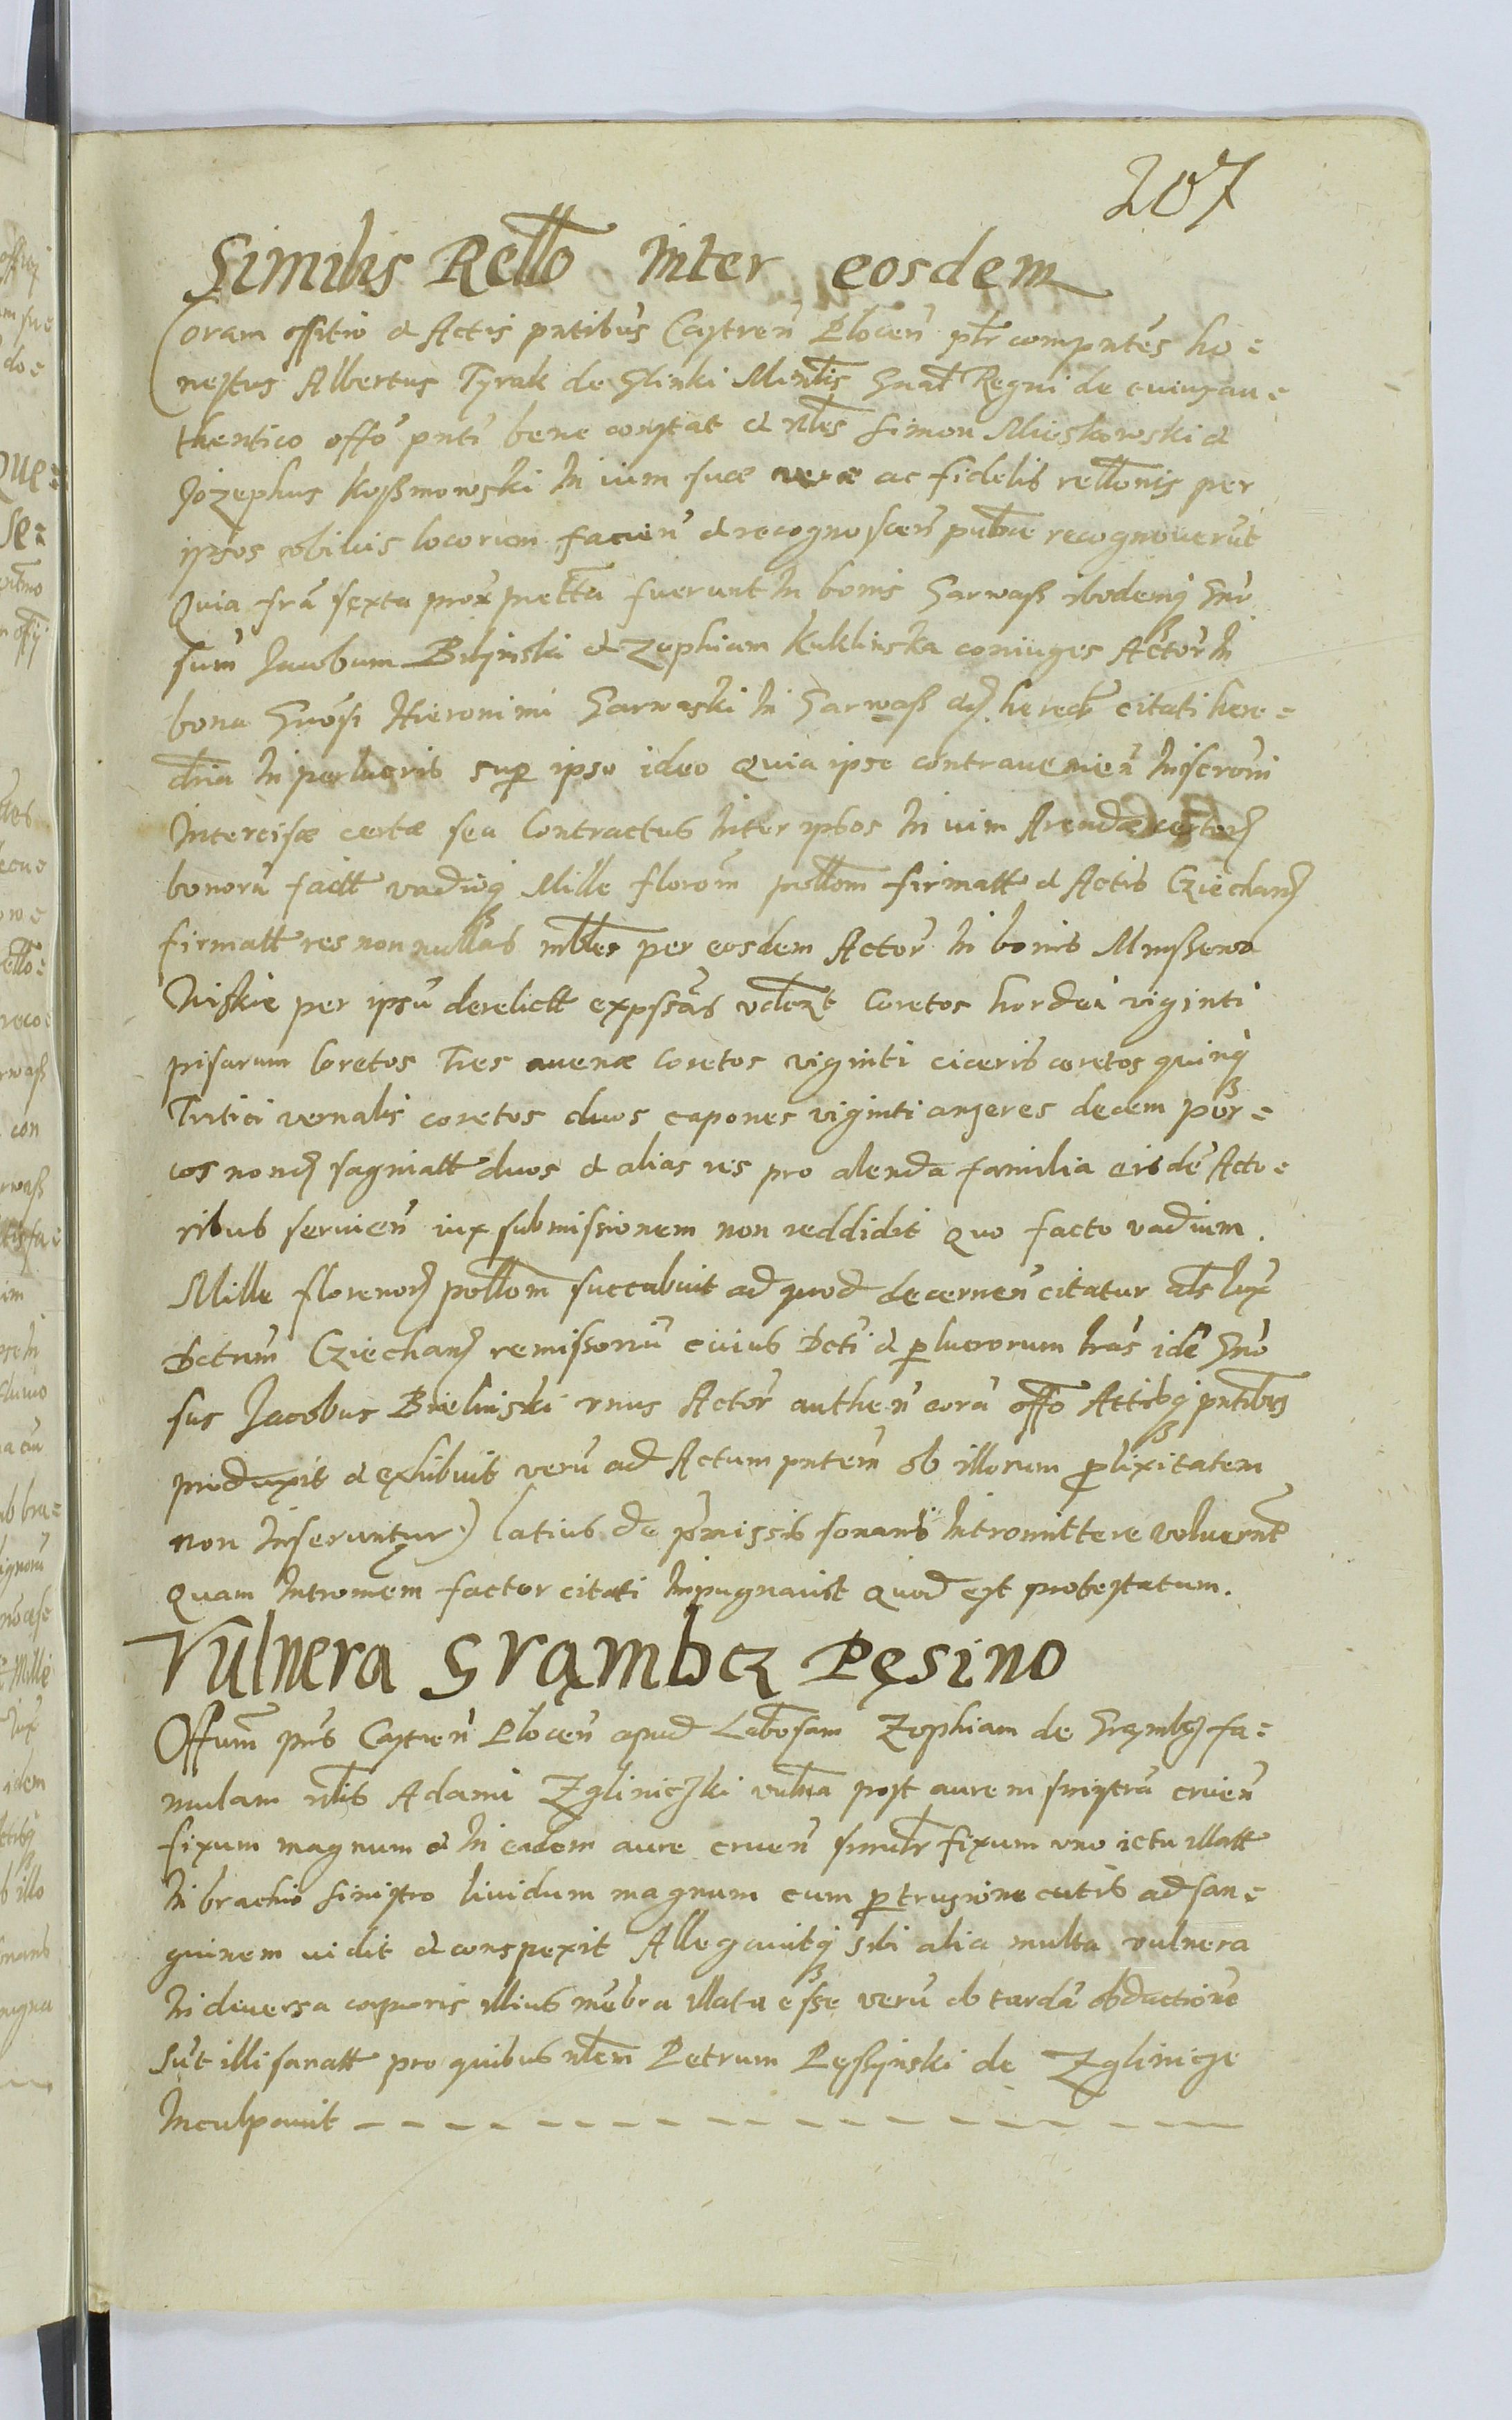 207
Similis Rello Inter eosdem
Coram offitio et Actis pntibus Castren Plocen pltr compntes ho=
nestus Albertus Tyrak de Glinki Mintlis Gnal Regni de cuius au=
thentico offo pnti bene constat et nbles Simon Mioskowski et
Jozephus Koszmowski In uim suæ veræ ac fidelis rellonis per
ipsos obiuis locorum facien et recognoscen publice recognouerut
Quia fra sexta prox prettta fuerunt In bonis Garwaß ibodemq Gno
sum Jacobum Bilynski et Zophiam Kuklinska coniuges Actor In
bona Gnosi Hieronimi Garwaski In Garwaß etc. hered citati here=
dria In perlucris sup ipso ideo Quia ipse contrauenien Inscroni
Intercisæ certæ seu Contractus Inter ipsos In uim Arendæ certor
bonoru factt vadioq Mille florom pollom firmatt et Actis Cziechan
firmatt res nonnullas mbles per eosdem Actor In bonis Mnißewo
Niskie per ipsu derelictt expssas vdezt Coretos hordei viginti
pisarum Coretos Tres auenæ Coretos viginti ciceris coretos quinq
Tritici vernalis coretos duos capones viginti anseres decem por=
cos non sagniatt duos et alias res pro alenda familia eisde Acto=
ribus seruien iux submissionem non reddidit quo facto vadium
Mille florenor pollom succubuit ad quod decernen citatur als Iux
Dctum Cziechan remissoriu cuius Dcti et perlucrorum lras ide Gno
sus Jacobus Bielinski vnus Actor authen cora offo Actisq pntibus
produxit et exhibuit veru ad Actum pntem ob illorum prolixitatem
non Inseruntur) latius de pmissis sonans Intromittere voluernt
Quam Intromem factor citati Inpugnauit Quod est protestatum.
Vulnera Grąmbcz Pęsino
Offum pns Castren Plocen apud Labosam Zophiam de Grąmbcz fa=
mulam nblis Adami Zgliniczki vulna post aurem sinistra cruen
fixum magnum et In eadem aure cruen simltr fixum vno ictu illatt
In brachio sinistro liuidum magnum cum protrusione cutis ad san=
guinem uidit et conspexit Allegauitq sibi alia multa vulnera
In diuersa corporis illius mebra illata esse veru ob tarda obductione
sut illi sanatt pro quibus nblem Petrum Pęssynski de Zglinicze
Inculpauit